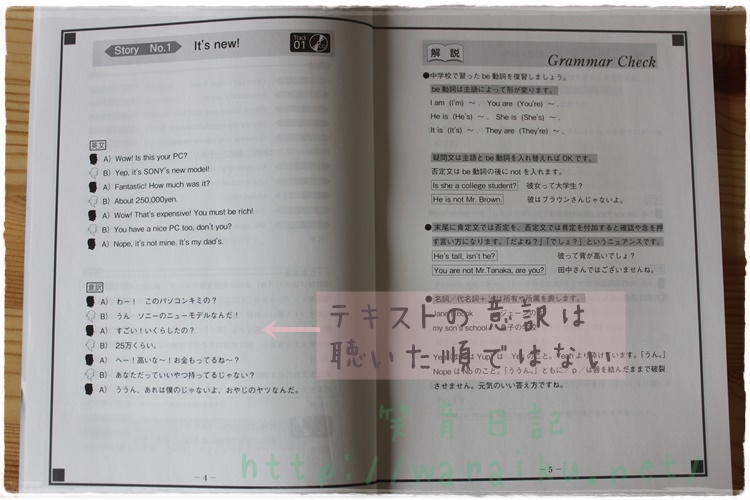 Story No.1
It's new!
Track 01
英文
A) Wow! Is this your PC?
B) Yep, it's SONY's new model!
A) Fantastic! How much was it?
B) About 250,000yen.
A) Wow! That's expensive! You must be rich!
B) You have a nice PC too, don't you?
A) Nope, it's not mine. It's my dad's.
意訳
A) わー! このパソコンキミの?
B) うん ソニーのニューモデルなんだ!
A) すごい!いくらしたの?
B) 25万くらい。
A) へー!高いな~!お金もってるね~?
B) あなただっていいやつ持ってるじゃない?
A) ううん、あれは僕のじゃないよ、おやじのヤツなんだ。
-4-
解説
Grammar Check
●中学校で習ったbe動詞を復習しましょう。
be動詞は主語によって形が変ります。
I am (I'm) ~ . You are (You're) ~ .
He is (He's) ~ . She is (She's) ~ .
It is (It's) ~ . They are (They're) ~ .
疑問文は主語とbe動詞を入れ替えればOKです。
否定文はbe動詞の後にnotを入れます。
Is she a college student? 彼女って大学生?
He is not Mr. Brown. 彼はブラウンさんじゃないよ。
●末尾に肯定文では否定を、否定文では肯定を付加すると確認や念を押
す言い方になります。「だよね?」「でしょ?」というニュアンスです。
He's tall, isn't he? 彼って背が高いでしょ?
You are not Mr.Tanaka, are you? 田中さんではございませんね。
●名詞/代名詞+'sは所有や所属を表します。
book
my son's school
Nope は No のこと。「ううん」ともに/p/は唇を結んだままで破裂
させません。元気のいい答え方ですね。
-5-
テキストの意訳は
聴いた順ではない
笑育日記
http://waraiku.net/